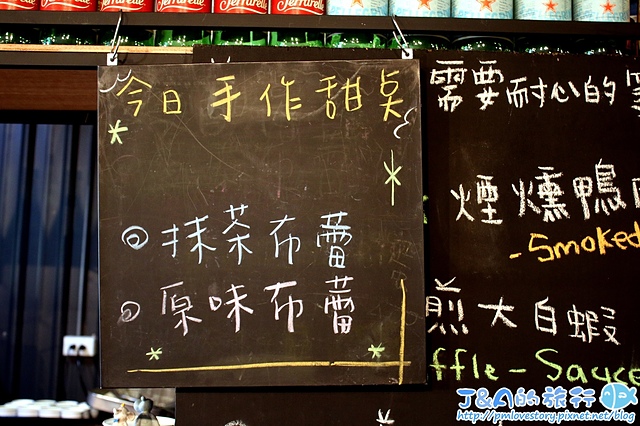 Ferrarelle Ferrarelle Ferrarelle Ferrarelle
今日手作甜奌
◎ 抹茶布蕾
◎ 原味布蕾
需要耐心的
煙燻鴨
-Smoked
煎大白蝦
ffle-Sauce
J&A的旅行
http://pmlovestory.pixnet.net/blog